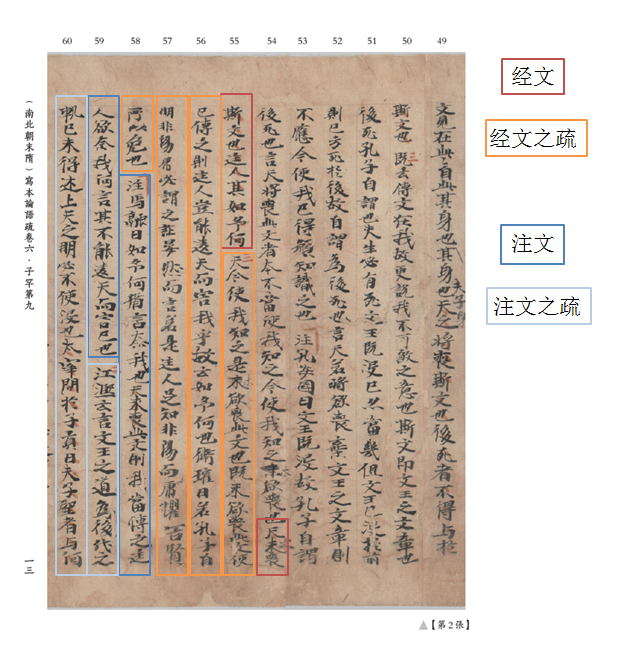 60 59 58 57 56 55 54 53 52 51 50 49
文見在此自此其身也其身夫子身也天之將喪斯文也後死者不得与於
斯文也 既云傳文在我故更說我不可煞之意也斯文即文王之文章也
後死孔子自謂也夫生必有死文王既没已亦當終但文王已没於前
則已方死於後故自謂為後死也言天若將欲喪棄文王之文章則
不應今使我已得預知識之也 注孔安國曰文王既没故孔子自謂
後死也言天將喪此文者本不當使我知之今使我知之未欲喪也天未喪
斯文也匡人其如予何 天今使我知之是未欲喪此文也既未欲喪此文使
已傳之則匡人豈能違天而害我乎故云如予何也衛瓘曰若孔子自
明非陽虎必謂之詐晏然而言若是匡人是知非陽虎而懼害賢
所以免也 注馬融曰如予何猶言奈我也天未喪此文則我當傳之匡
人欲奈我何言其不能違天而害已也 江熙云言文王之道為後代之
軌已未得述上天之明必不使没也太宰問於子貢曰夫子聖者与何
(南北朝末隋)寫本論語疏卷六·子罕第九
一三
▲【第2張】
经文
经文之疏
注文
注文之疏